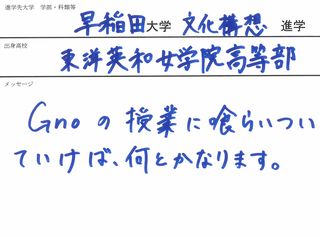 進学先大学 学部・科類等
早稲田大学 文化構想 進学
出身高校
東洋英和女学院高等部
メッセージ
Gnoの授業に喰らいつい
ていけば、何とかなります。